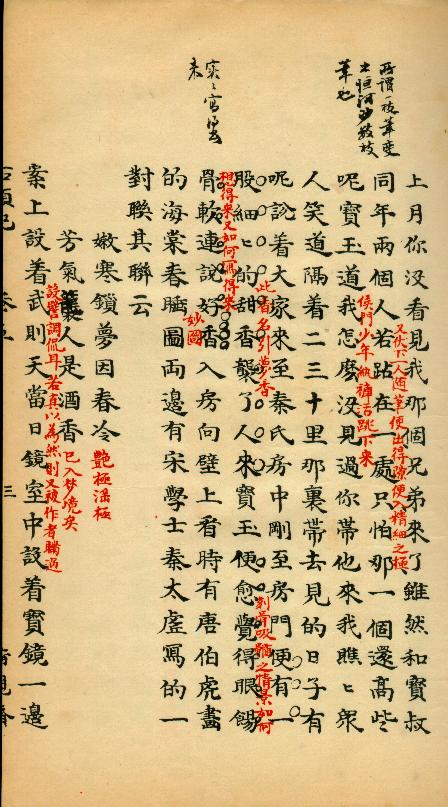 所謂一枝筆變
出恒河沙数枝
筆也
上月你没看見我那個兄弟來了雖然和寳叔
又伏下一人隨筆便出得隙便入精細之極
同年兩個人若站在一處只怕那一個還高些
侯門少年紈褲活跳下來
呢寳玉道我怎麽没見過你帶他來我瞧〻衆
人笑道隔着二三十里那裏帶去見的日子有
呢說着大家來至秦氏房中剛至房門便有一
刻骨吸髓之情景如何
想得來又如何寫得來
此香名引夢香
股細〻的甜香襲了人來寳玉便愈覺得眼餳
骨軟連說好香入房向壁上看時有唐伯虎畫
妙圖
的海棠春睡圖兩邊有宋學士秦太虛寫的一
對聯其聯云
嫩寒鎖夢因春冷
艷極淫極
芳氣籠人是酒香
已入夢境矣
設譬調侃耳若真以為然則又被作者瞞過
案上設着武則天當日鏡室中設着寳鏡一邊
石頭記 卷五 三